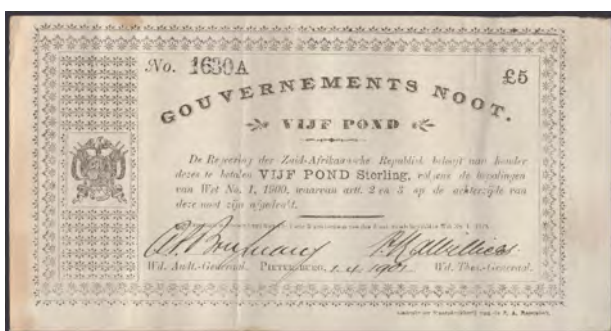 No. 1630A
£5
GOUVERNEMENTS NOOT.
VIJF POND
De Regeering der Zuid-Afrikaansche Republiek belooft aan houder
dezes te betalen VIJF POND Sterling, volgens de bepalingen
van Wet No. 1, 1900, waarvan artt. 2 en 3 op de achterzijde van
deze noot zijn afgedrukt.
Wd. Audt.-Generaal. PIETERSBURG, 1.4.1901. Wd. Thes.-Generaal.